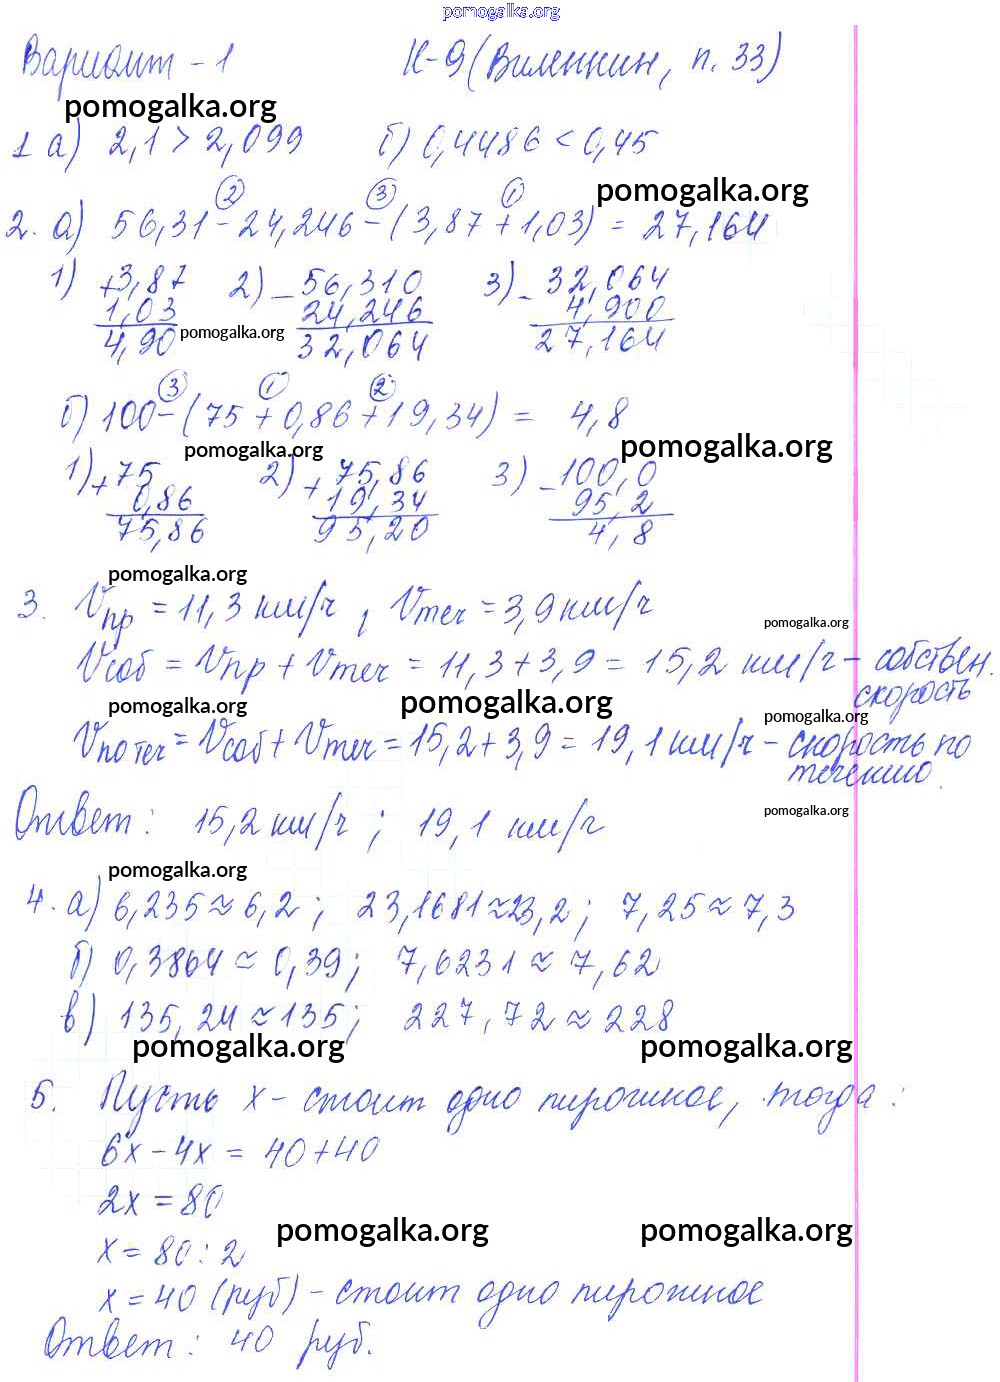 pomogalka.org
Вариант - 1 К-9 (Виленкин, п. 33)
pomogalka.org
1 а) 2,1 > 2,099 б) 0,4486 < 0,45
pomogalka.org
② ③ ①
2. а) 56,31 - 24,246 - (3,87 + 1,03) = 27,164
1) +3,87 2) - 56,310 3) - 32,064
1,03 24,246 4,900
4,90 pomogalka.org 32,064 27,164
③ ① ②
б) 100 - (75 + 0,86 + 19,34) = 4,8
pomogalka.org pomogalka.org
1) + 75 2) + 75,86 3) - 100,0
0,86 19,34 95,2
75,86 95,20 4,8
pomogalka.org
3. Vпр = 11,3 км/ч, Vтеч = 3,9 км/ч
pomogalka.org
Vсоб = Vпр + Vтеч = 11,3 + 3,9 = 15,2 км/ч - собствен.
скорость
pomogalka.org pomogalka.org pomogalka.org
Vпо теч = Vсоб + Vтеч = 15,2 + 3,9 = 19,1 км/ч - скорость по
течению.
Ответ: 15,2 км/ч; 19,1 км/ч
pomogalka.org
pomogalka.org
4. а) 6,235 ≈ 6,2; 23,1681 ≈ 23,2; 7,25 ≈ 7,3
б) 0,3864 ≈ 0,39; 7,6231 ≈ 7,62
в) 135,24 ≈ 135; 227,72 ≈ 228
pomogalka.org pomogalka.org
5. Пусть х - стоит одно пирожное, тогда:
6х - 4х = 40 + 40
2х = 80
pomogalka.org pomogalka.org
х = 80 : 2
х = 40 (руб) - стоит одно пирожное
Ответ: 40 руб.